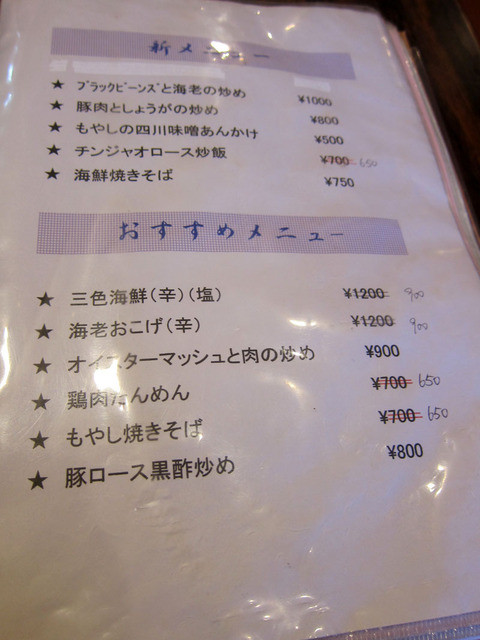 新メニュー
★ ブラックビーンズと海老の炒め ¥1000
★ 豚肉としょうがの炒め ¥800
★ もやしの四川味噌あんかけ ¥500
★ チンジャオロース炒飯 ¥700 650
★ 海鮮焼きそば ¥750
おすすめメニュー
★ 三色海鮮(辛)(塩) ¥1200 900
★ 海老おこげ(辛) ¥1200 900
★ オイスターマッシュと肉の炒め ¥900
★ 鶏肉たんめん ¥700 650
★ もやし焼きそば ¥700 650
★ 豚ロース黒酢炒め ¥800